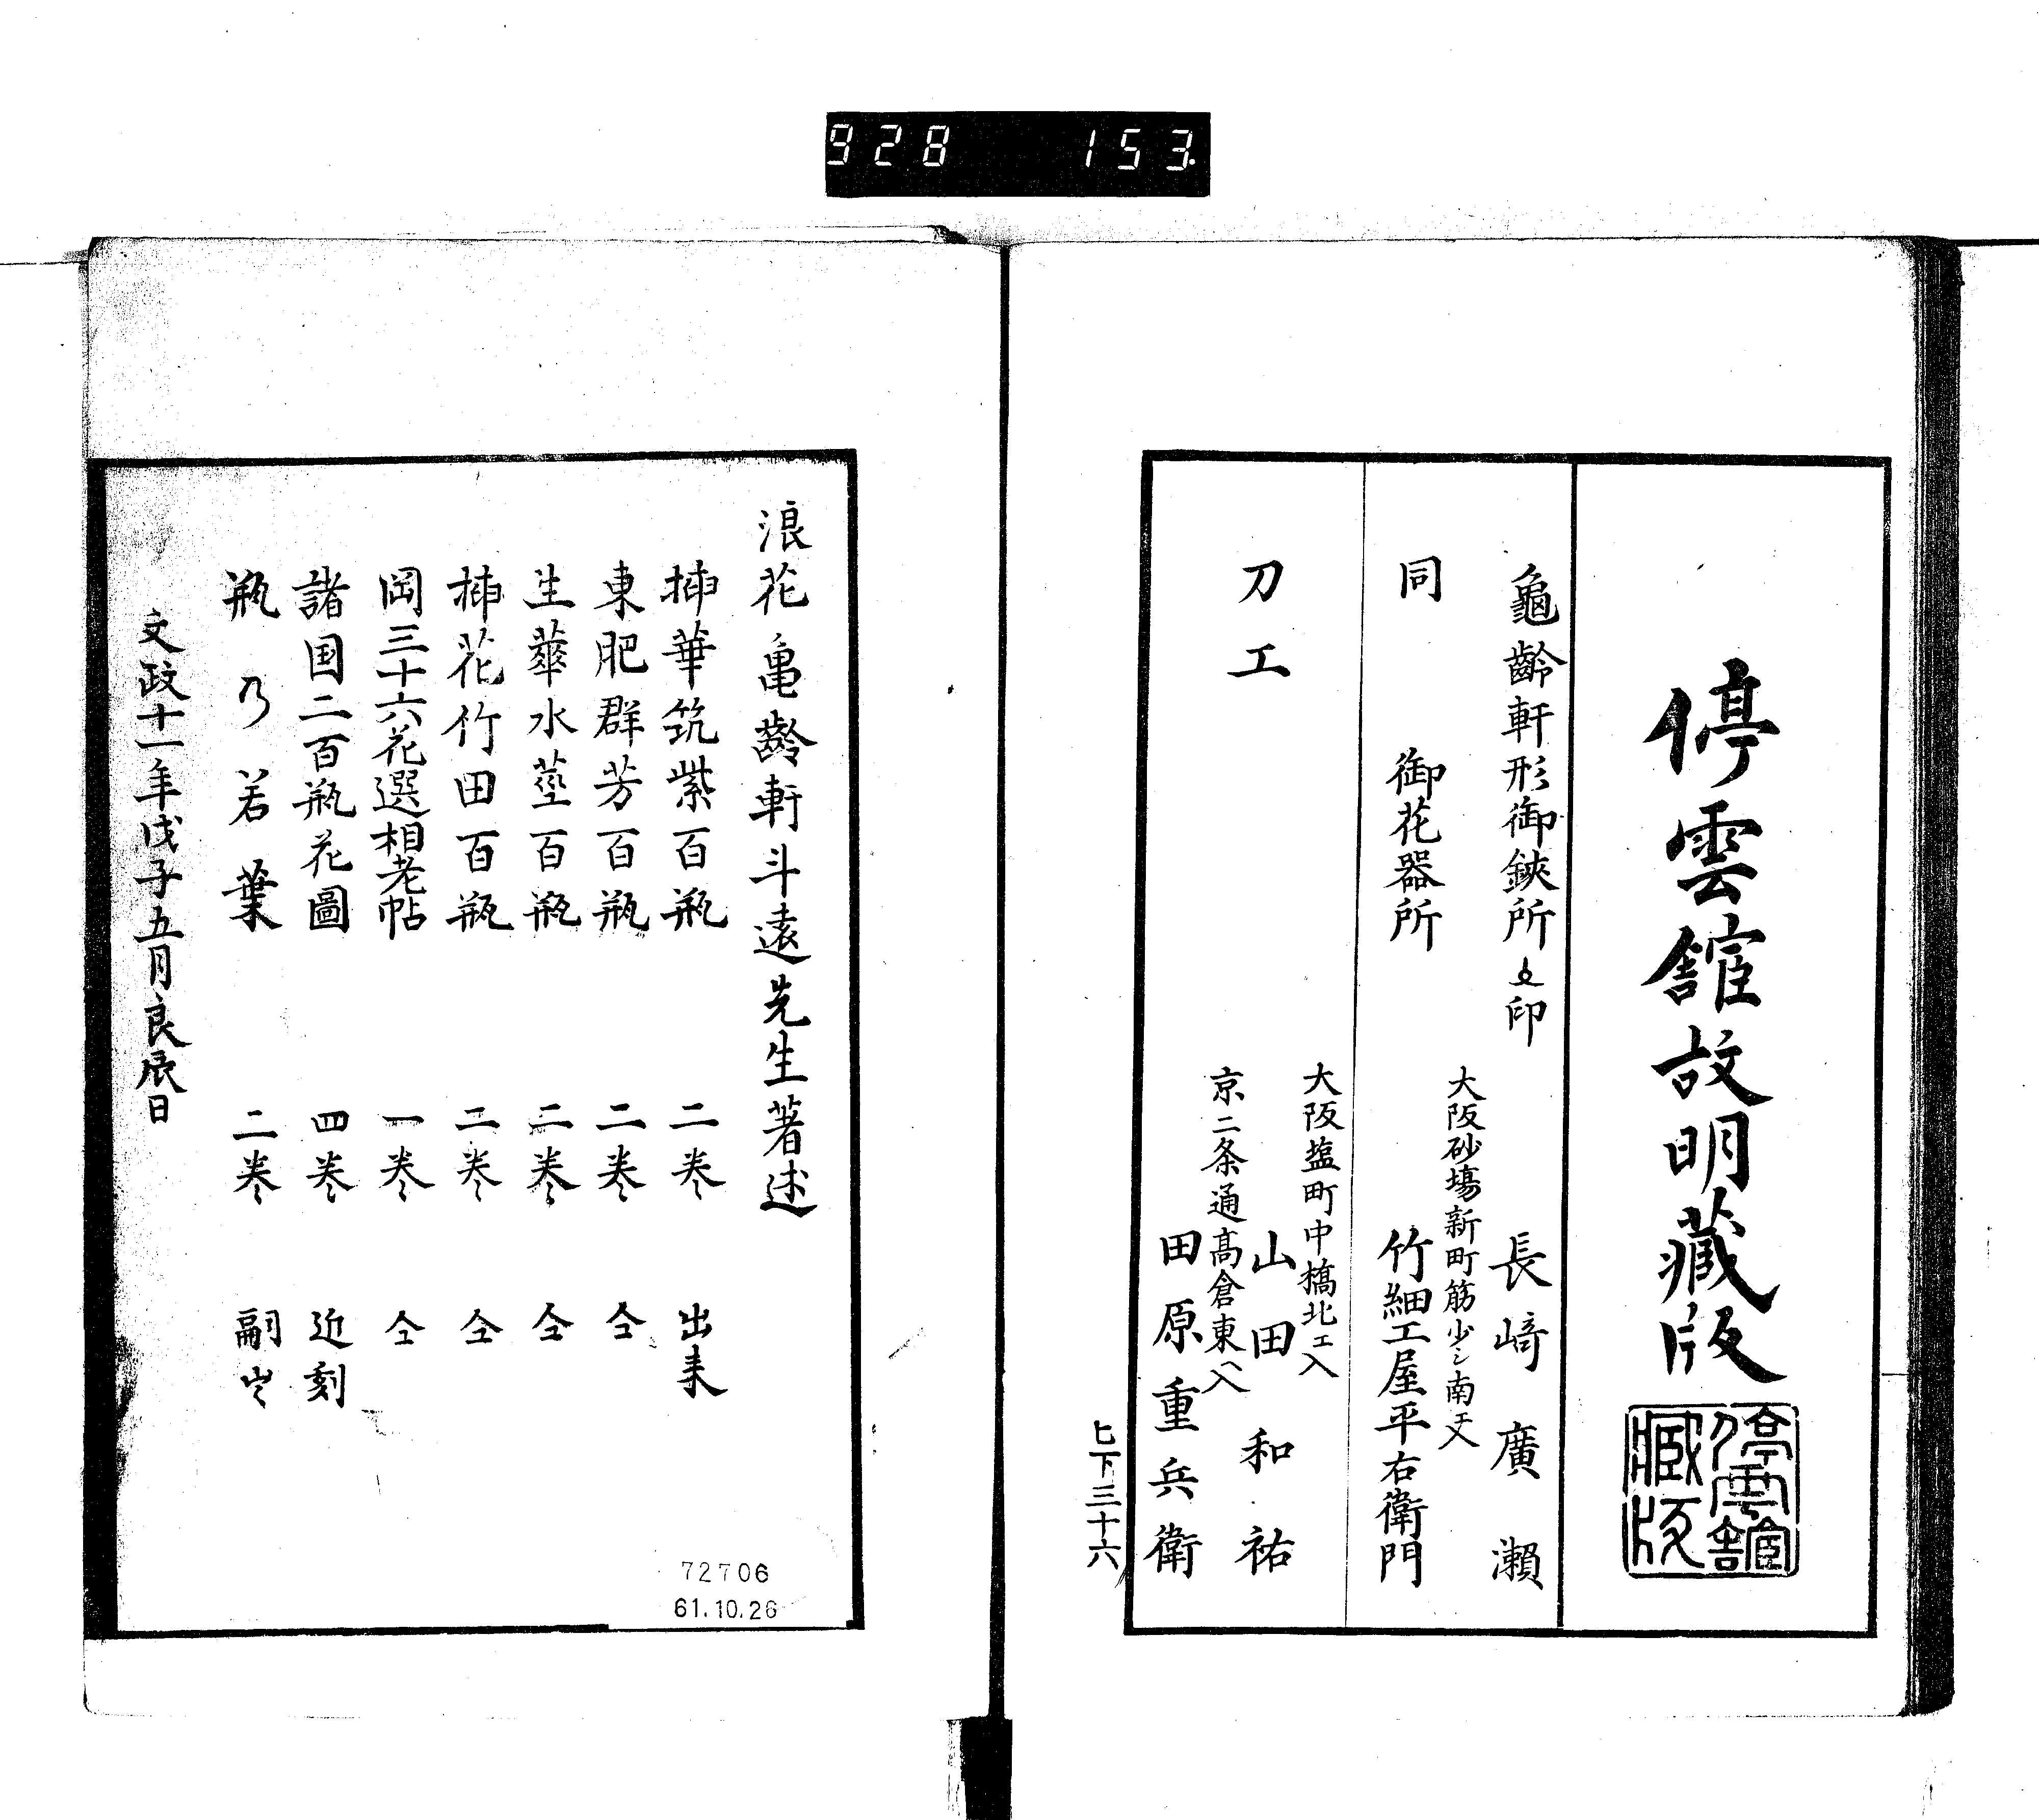 928 153
停雲舘故明藏版
停雲舘藏版
龜齡軒形御鋏所
印
長﨑廣瀬
同 御花器所
大阪砂場新町筋少シ南エ入
竹細工屋平右衛門
刀工
大阪塩町中橋北エ入
山田和祐
京二条通髙倉東ヘ入
田原重兵衛
ヒ下三十六
浪花亀齡軒斗遠先生著述
挿華筑紫百瓶 二巻 出来
東肥群芳百瓶 二巻 仝
生華水莖百瓶 二巻 仝
挿花竹田百瓶 二巻 仝
岡三十六花選相老帖 一巻 仝
諸国二百瓶花圖 四巻 近刻
瓶乃若葉 二巻 嗣出
文政十一年戊子五月良辰日
72706
61.10.26